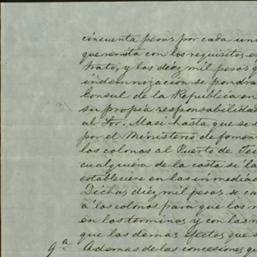 cincuenta pesos por cada uno
que remita con los requisitos e
trato, y los diez mil pesos
indemnizacion se pondra
Consul de la Republica en
su propia responsabilidad
al Sor. Masi hasta que se
por el Ministerio de fomen
los colonos al Puerto de
cualquiera de la costa se la
establecere en las inmedia
Dichos diez mil pesos se ca
a los colonos para que los
en los terminos y con las
que las demas efectos que s
9ª. Ademas de las concesiones qu